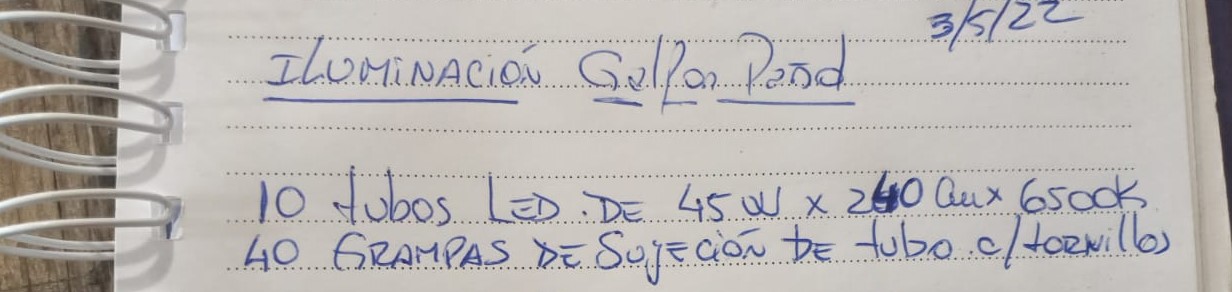 3/5/22
ILUMINACIÓN Galpon
10 tubos LED. DE 45W x 240 x 6500K
40 GRAMPAS DE SUJECIÓN DE tubo c/tornillos